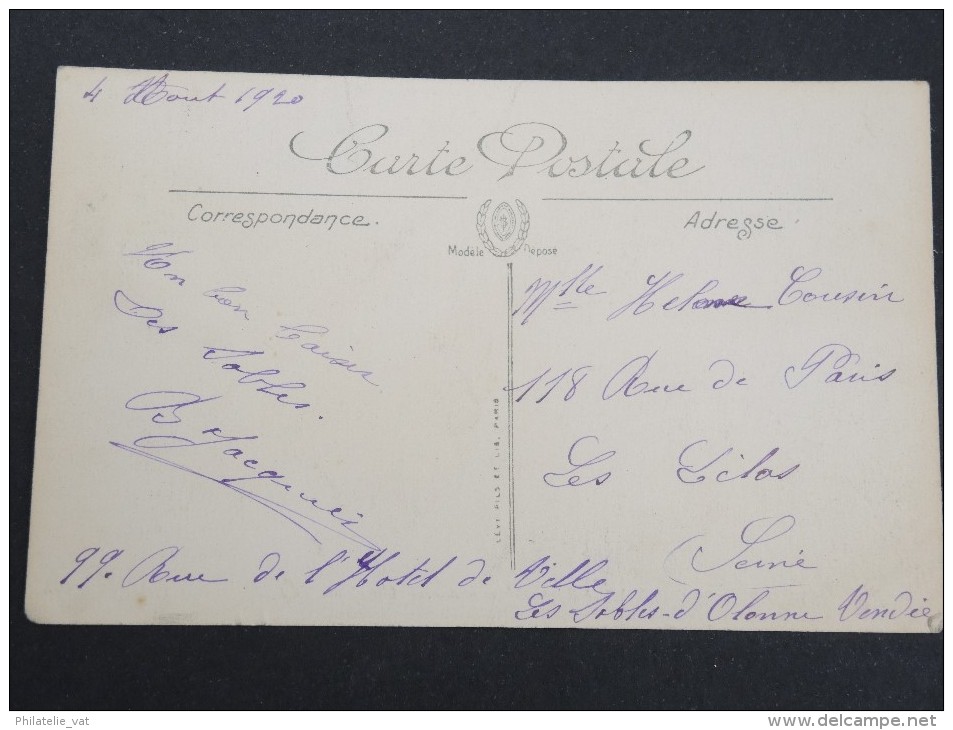 4 Aout 1920
Carte Postale
Correspondance.
Adresse.
Modèle Déposé
Un bon baiser
Des Sables.
B Jacques
Mlle Helene Cousin
118 Rue de Paris
Les Lilas
Seine
LÉVY FILS ET CIE, PARIS
99. Rue de l'Hotel de Ville
Les Sables-d'Olonne Vendée
Philatelie_vat
delcampe.net